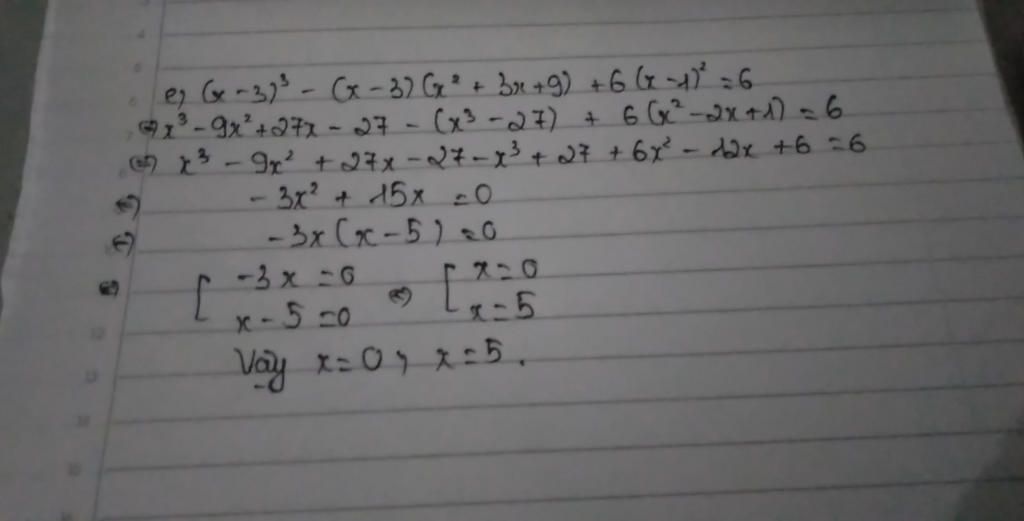 e, (x - 3)³ - (x - 3)(x² + 3x + 9) + 6(x - 1)² = 6
⇔ x³ - 9x² + 27x - 27 - (x³ - 27) + 6(x² - 2x + 1) = 6
⇔ x³ - 9x² + 27x - 27 - x³ + 27 + 6x² - 12x + 6 = 6
⇔ - 3x² + 15x = 0
⇔ - 3x(x - 5) = 0
⇔ [ -3x = 0 ⇔ [ x = 0
x - 5 = 0 x = 5
Vậy x = 0, x = 5.